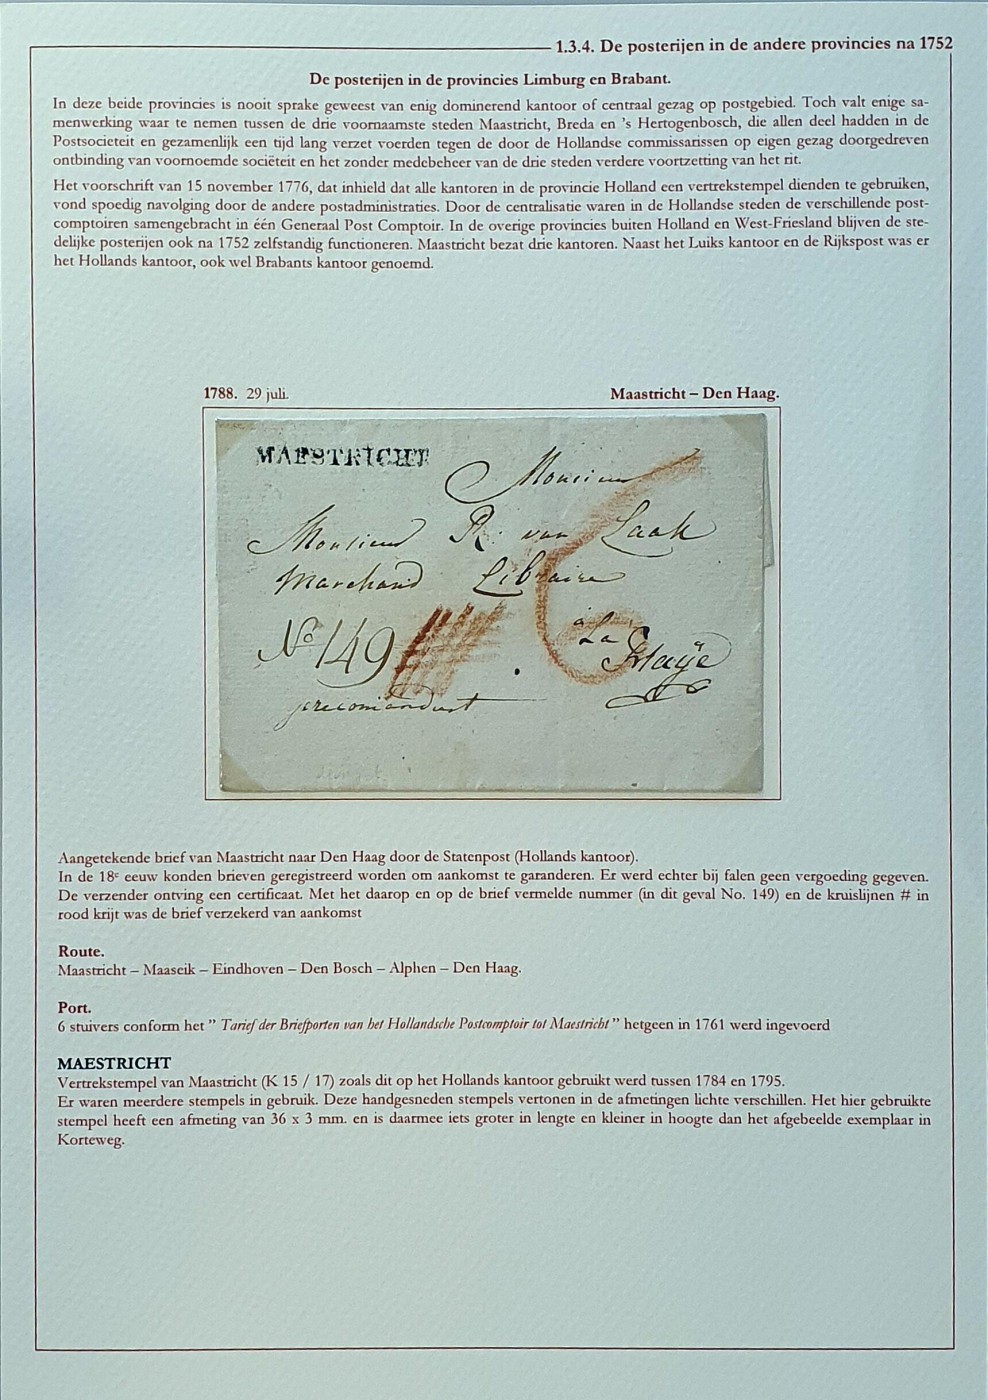 1.3.4. De posterijen in de andere provincies na 1752
De posterijen in de provincies Limburg en Brabant.
In deze beide provincies is nooit sprake geweest van enig dominerend kantoor of centraal gezag op postgebied. Toch valt enige sa-
menwerking waar te nemen tussen de drie voornaamste steden Maastricht, Breda en 's Hertogenbosch, die allen deel hadden in de
Postsocieteit en gezamenlijk een tijd lang verzet voerden tegen de door de Hollandse commissarissen op eigen gezag doorgedreven
ontbinding van voornoemde sociëteit en het zonder medebeheer van de drie steden verdere voortzetting van het rit.
Het voorschrift van 15 november 1776, dat inhield dat alle kantoren in de provincie Holland een vertrekstempel dienden te gebruiken,
vond spoedig navolging door de andere postadministraties. Door de centralisatie waren in de Hollandse steden de verschillende post-
comptoiren samengebracht in één Generaal Post Comptoir. In de overige provincies buiten Holland en West-Friesland blijven de ste-
delijke posterijen ook na 1752 zelfstandig functioneren. Maastricht bezat drie kantoren. Naast het Luiks kantoor en de Rijkspost was er
het Hollands kantoor, ook wel Brabants kantoor genoemd.
1788. 29 juli.
Maastricht – Den Haag.
MAESTRICHT
Monsieur
Monsieur R. van Laak
Marchand Libraire
à La Haÿe
No 149
6
Aangetekende brief van Maastricht naar Den Haag door de Statenpost (Hollands kantoor).
In de 18e eeuw konden brieven geregistreerd worden om aankomst te garanderen. Er werd echter bij falen geen vergoeding gegeven.
De verzender ontving een certificaat. Met het daarop en op de brief vermelde nummer (in dit geval No. 149) en de kruislijnen # in
rood krijt was de brief verzekerd van aankomst
Route.
Maastricht – Maaseik – Eindhoven – Den Bosch – Alphen – Den Haag.
Port.
6 stuivers conform het " Tarief der Briefporten van het Hollandsche Postcomptoir tot Maestricht " hetgeen in 1761 werd ingevoerd
MAESTRICHT
Vertrekstempel van Maastricht (K 15 / 17) zoals dit op het Hollands kantoor gebruikt werd tussen 1784 en 1795.
Er waren meerdere stempels in gebruik. Deze handgesneden stempels vertonen in de afmetingen lichte verschillen. Het hier gebruikte
stempel heeft een afmeting van 36 x 3 mm. en is daarmee iets groter in lengte en kleiner in hoogte dan het afgebeelde exemplaar in
Korteweg.